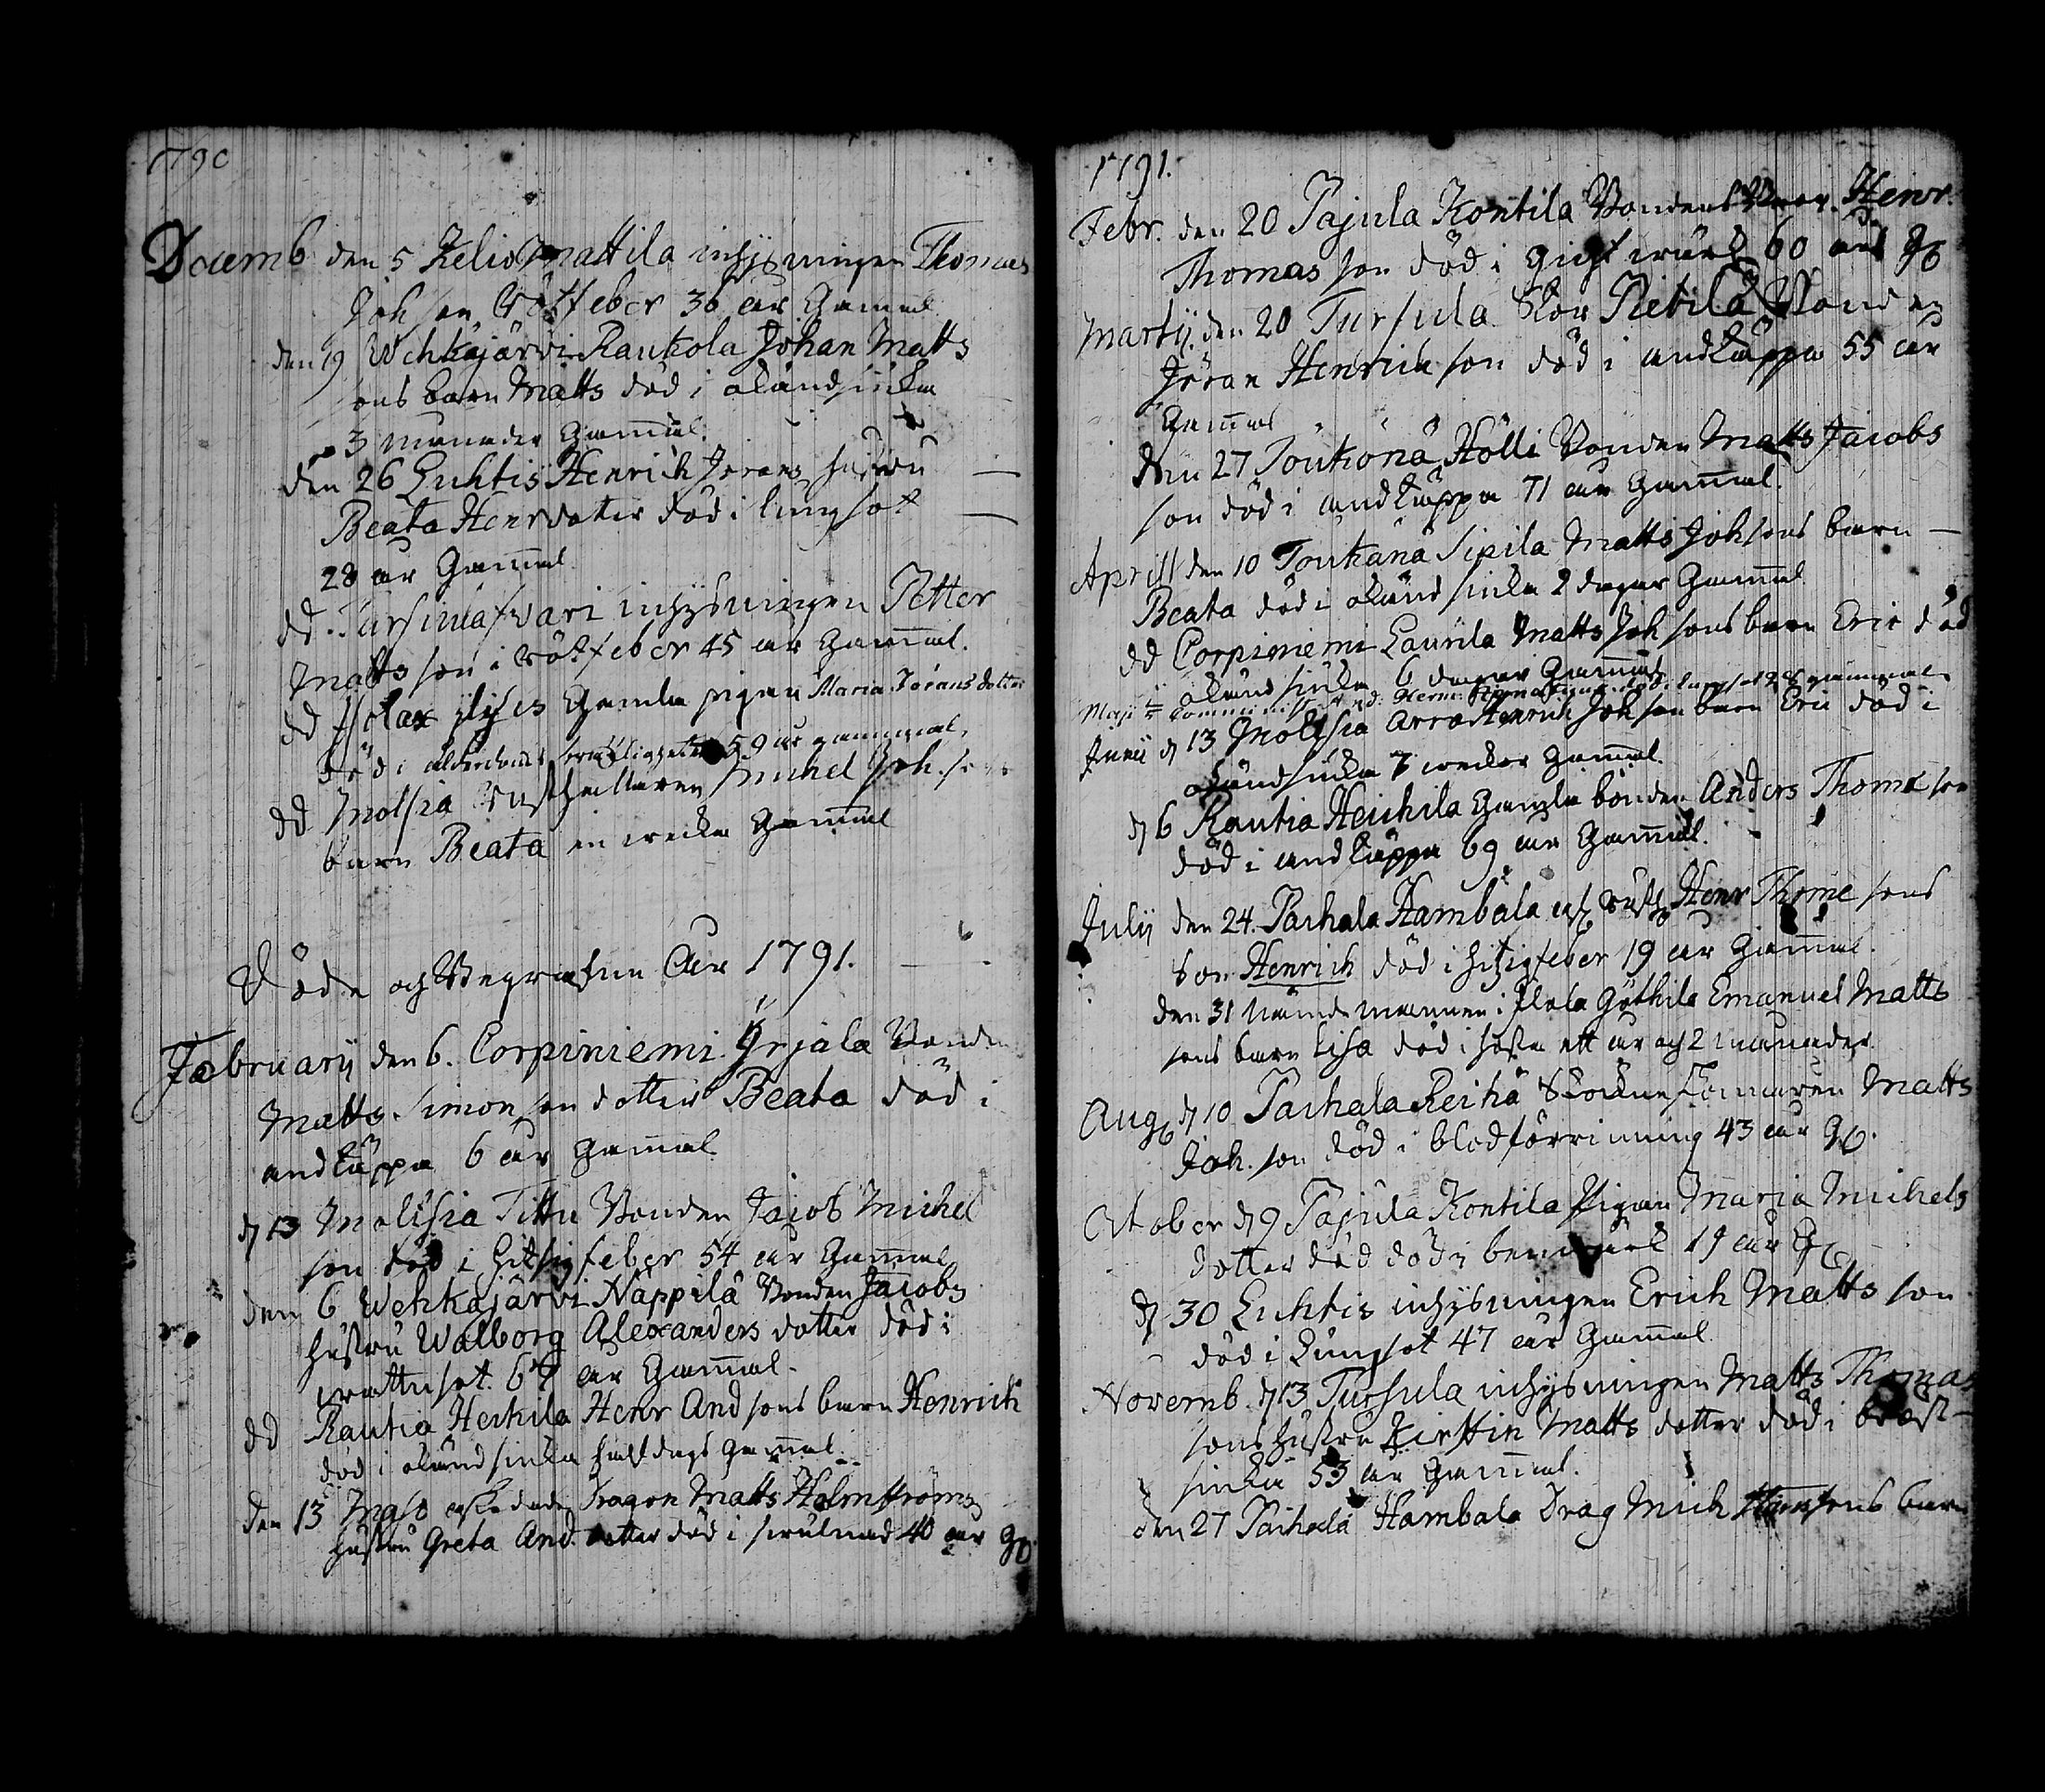 1790
Decemb den 5 Kelio Mattila inhÿsningen Thomas
Joh son Rötfeber 36 år Gamal
den 19 Wehkajärvi Raukola Johan Matts
sons barn Matts död i okänd siuka
3 månader Gammal.
den 26 Luhtis Henrich Jörans hustru
Beata Henrdotter död i lungsot
28 år Gammal
dd. Tursula inhÿsningen Petter
Matts son i rötfeber 45 år Gammal.
dd Gamla pigan Maria Jörans dotter
död i ålderdoms 59 år gammal,
dd Molsia Rusthållaren Michel Joh. sons
barn Beata en wecka Gammal
Döde och Begrafne Åhr 1791.
February den 6. Corpiniemi Yrjälä Bonden
Matts Simon son dotter Beata död i
andtäppa 6 år Gamal
d 13 Molisia Tittu Bonden Jacob Michel
son död i Hitsigfeber 54 år Gammal
den 6 Wehkajärvi Näppilä Bonden Jacobs
hustru Walborg Alexanders dotter död i
wattusot. 67 år Gammal.
dd Rautia Heikila Henr And sons barn Henrich
död i okänd siuka half dags Gammal.
den 13 afskedade Dragon Matts Holmströms
hustru Greta And. dotter död i swulnad 40 år G
1791.
Febr. den 20 Pajula Kontila Bondens Henr.
Thomas son död i Gickt wärk 60 års G
Martÿ. den 20 Tursula Stor Pietilä Bonden
Jöran Henrich son död i andtäppa 55 år
Gamal
den 27 Toukona Hölli Bonden Matts Jacobs
son död i andtäppa 71 år Gammal.
Aprill den 10 Toukana Sipila Matts Johsons barn
Beata död i okänd siuka 2 dagar Gammal
dd Corpiniemi Laurila Matts Joh sons barn Eric död
okänd siuka 6 dagar Gammal
Maji
Junii d 13 Molisia Arra Henrich Joh son barn Eric död i
okänd siuka 7 weckor Gammal.
d 6 Rautia Heichila Gamla bonden Anders Thome son
död i andtäppa 69 år Gammal.
Julÿ den 24. Paihala Hambala Henr Thome sons
Son Henrich död i hitzigfeber 19 år Gammal.
den 31 Nämndemannen i Göthila Emanuel Matts
sons barn Lisa död i hosta ett år och 2 månader.
Aug d 10 Paihala Reihä Sockneskomakaren Matts
Joh. son död i blodförrinning 43 år G.
October d 9 Pajula Kontila Pigan Maria Michels
dotter död död i 19 år G
d 30 Luhtis inhÿsningen Erich Matts son
död i Lungsot 47 år Gammal
Novemb. d 13 Tursula inhÿsningen Matts Thomas
sons hustru Kirstin Matts dotter död i bröst-
siuka 53 år Gammal.
den 27 Paihala Hambala Drag Mich sons barn